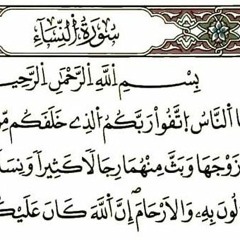 سُورَةُ النِّسَاءِ
بِسْمِ اللَّهِ الرَّحْمَٰنِ الرَّحِيـ
ـا النَّاسُ اتَّقُوا رَبَّكُمُ الَّذِي خَلَقَكُم مِّن
زَوْجَهَا وَبَثَّ مِنْهُمَا رِجَالًا كَثِيرًا وَنِسَا
لُونَ بِهِ وَالْأَرْحَامَ إِنَّ اللَّهَ كَانَ عَلَيْكُـ